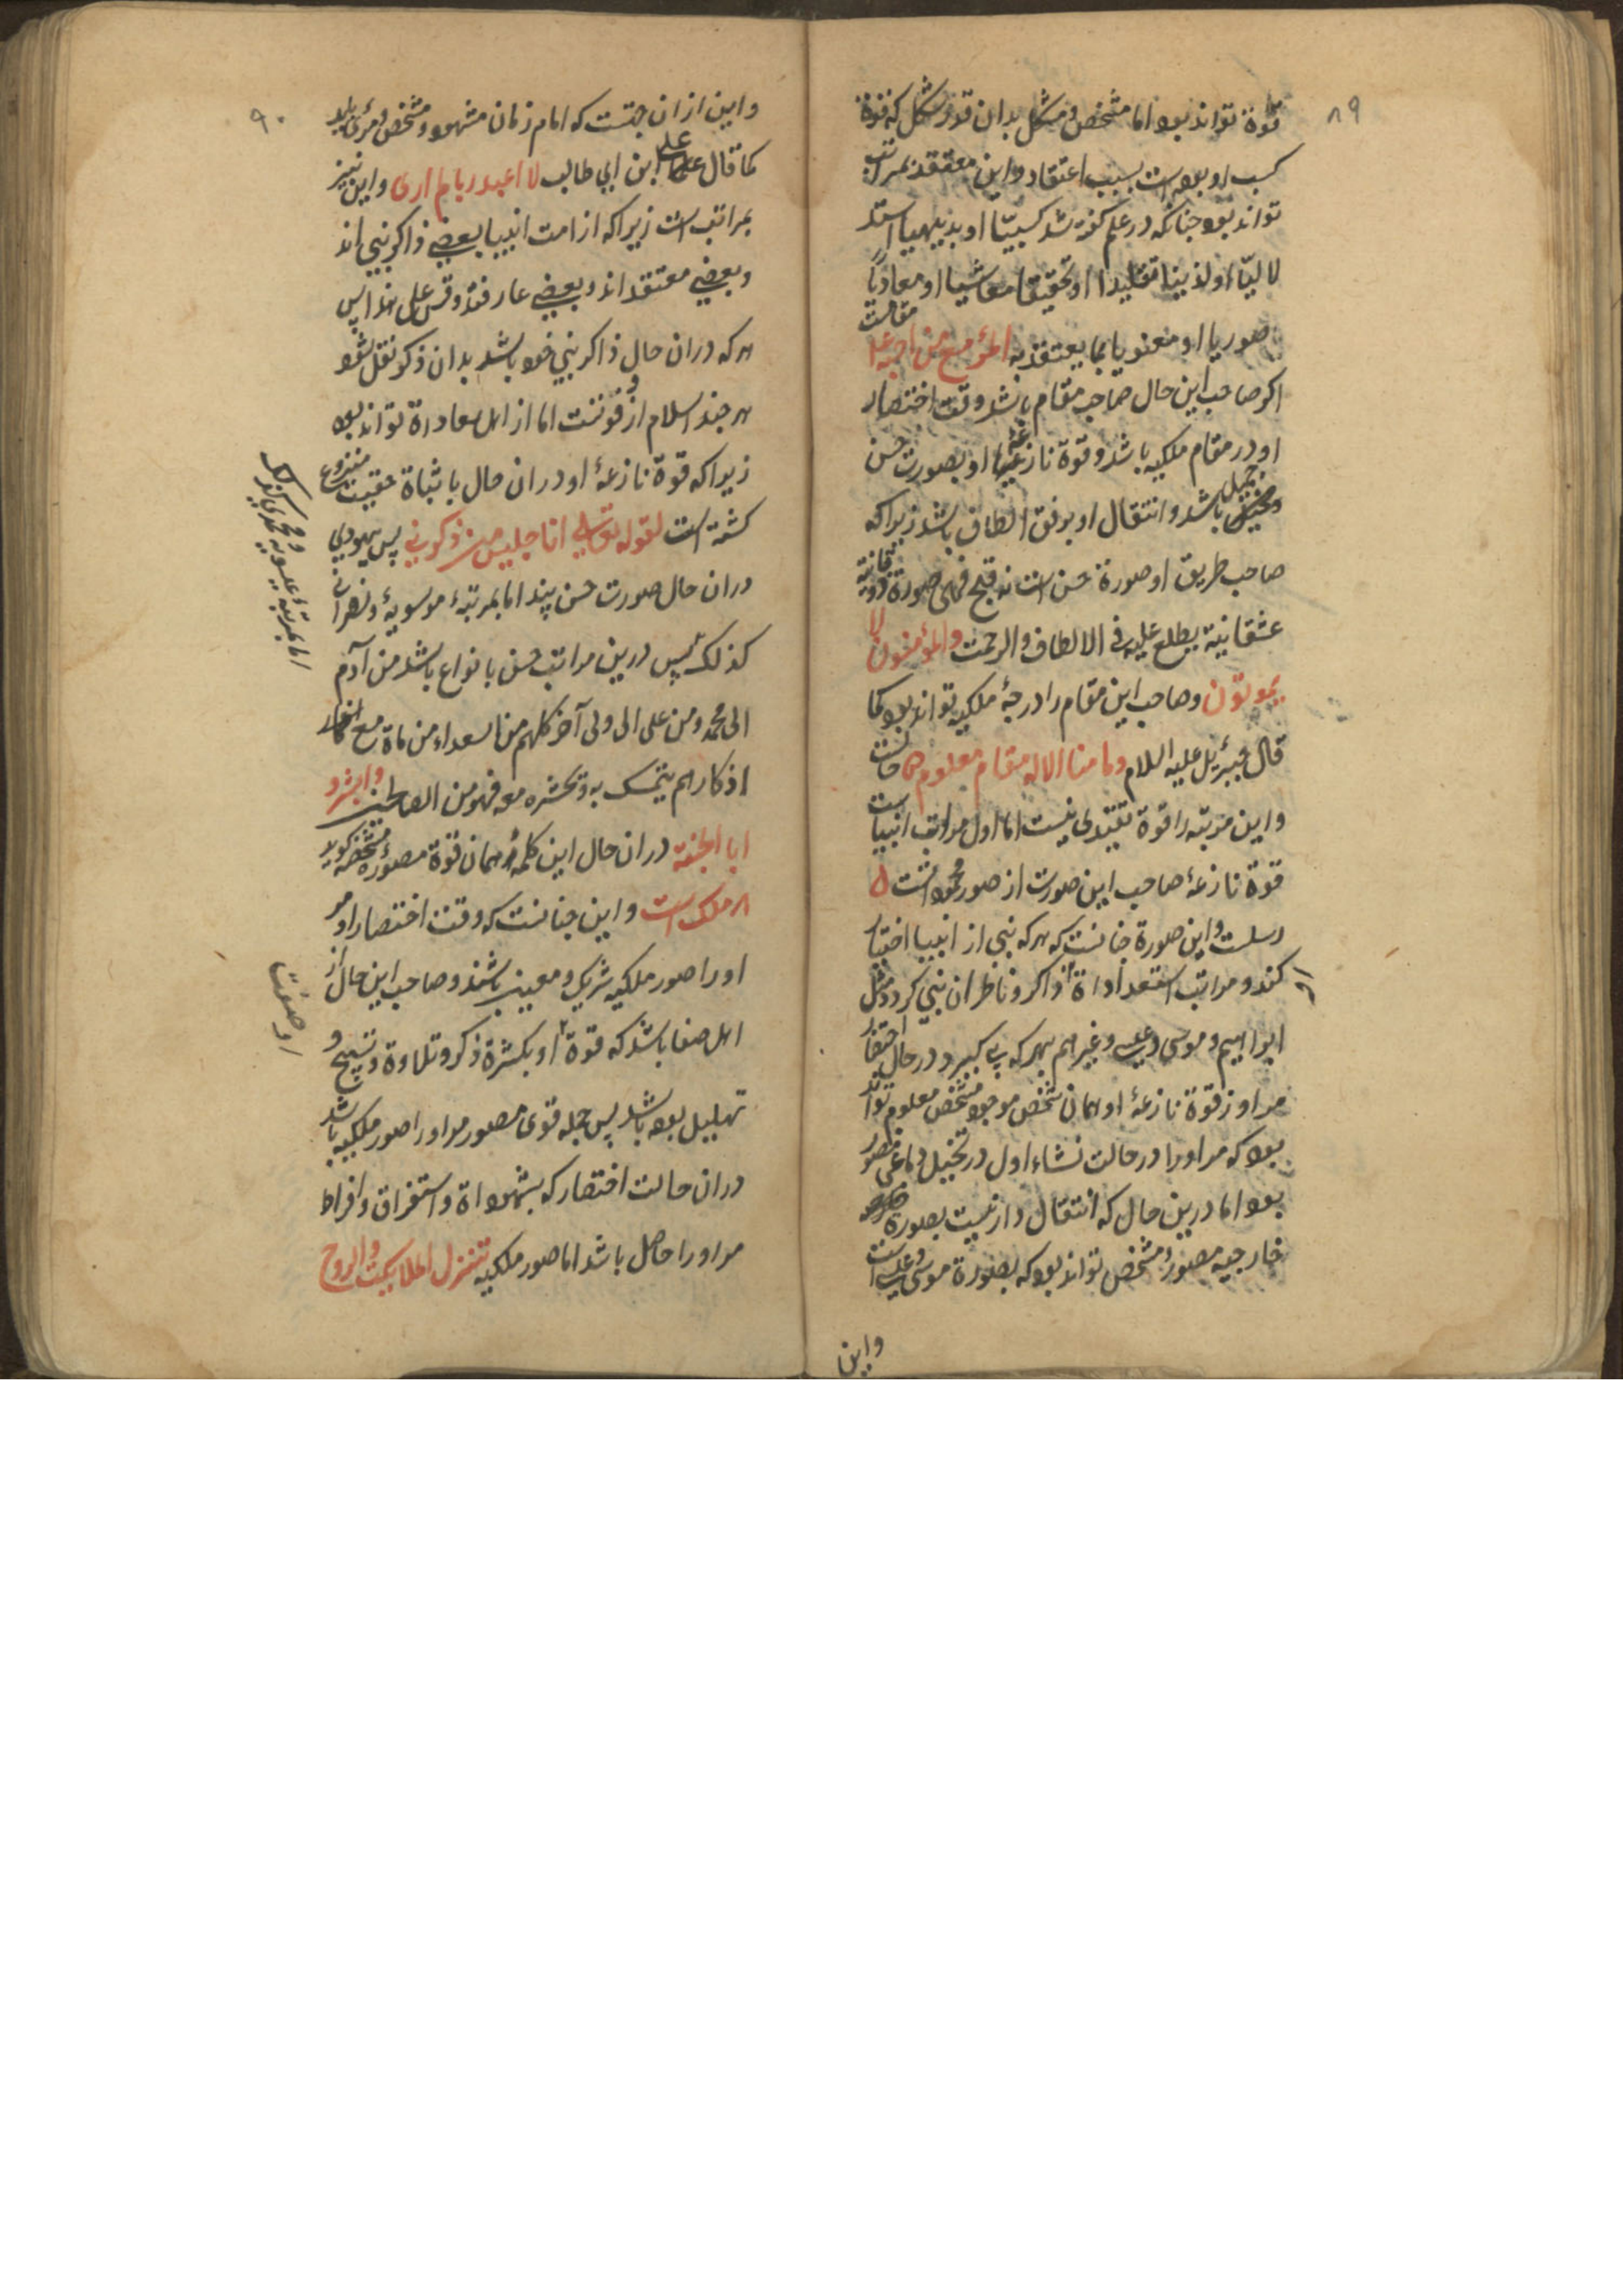 ۸۹
قوة تواند بود اما مشخص و مشکل بدان قوة و شکل که قوة
کسب او بوده است بسبب اعتقاد و این معتقد بمراتب
تواند بود جنانکه در علم کفته شد کسبیّا او بدیهیا استد
لالیّا او لذینیا تقلیدا او تحقیقا معاشیا او معادیا
صوریا او معنویا بما یعتقد به المرؤ مع من احبه
اکر صاحب این حال صاحب مقام باشد وقت اختصار
او در مقام ملکیه باشد و قوة نازعهٔ او بصورت حسن
و جمیل باشد و انتقال او برفق الطاف باشد زیرا که
صاحب طریق او صورة حسن است نه قبح فهی صورة
عشقانیة یطلع علیه فی الالطاف والرحمت والمؤمنون لا
یموتون و صاحب این مقام را درجهٔ ملکیه تواند بود کما
قال جبرئیل علیه السلام وما منا الا له مقام معلوم
و این مرتبه را قوة نیست اما اول مراتب انبیاست
قوة نازعهٔ صاحب این صورت از صور محموداتست
رسلت و این صورة جنانست که هر که نبی از انبیا اختیار
کند و مراتب استعداداة ذاکر و ناظر ان نبی کردد مثل
ابراهیم و موسی و عیسی و غیرهم بهر که پی کیرد در حال احتضار
مر او ز قوة نازعهٔ او همان شخص موجود مشخص معلوم تواند
بود که مر اورا در حالت نشاء اول در تخیل دماغی مصور
بود اما درین حال که انتقال دارنیست بصورة
خارجیه مصور و مشخص تواند بود که بصورة موسی و عیسی است
و این
۹۰
و این ازان جهتست که امام زمان مشهود و مشخص و مرئی باید
کما قال علی ابن ابی طالب لا اعبد ربا لم اری و این نیز
بمراتب است زیرا که از امت انبیا بعضی ذاکر نبی اند
و بعضی معتقد اند و بعضی عارفند و قس علی هذا پس
هر که دران حال ذاکر نبی خود باشد بدان ذکر نقل شود
هر جند اسلام از و فوتست اما از اهل سعادة تواند بود
زیرا که قوة نازعهٔ او دران حال باثباة حقیت منزوع
کشته است لقوله تعالی انا جلیس من ذکرنی پس یهودی
دران حال صورت حسن بیند اما بمرتبهٔ موسویهٔ و نصرانی
کذلک پس درین مراتب حسن بانواع باشد من آدم
الی محمد و من علی الی ولی آخر کلهم من السعداء من ماة مع
اذکارهم یتمسک به و تحشره معه فهو من الصالحین وابشروا
ابا الجنة دران حال این کلمهٔ همان قوة مصورهٔ مشخصه کوید
هر ملک است و این جنانست که وقت اختصار او مر
اورا صور ملکیه شریک و معین باشند و صاحب این حال از
اهل صفا باشد که قوة او بکثرة ذکر و تلاوة و تسبیح و
تهلیل بوده باشد پس جمله قوی مصور مر اورا صور ملکیه باشد
دران حالت اختصار که بشهواة و استغراق و افراط
مر اورا حاصل باشد اما صور ملکیه تتنزل الملائکة والروح
اما بمرتبهٔ عیسویه و محمدی کذلک